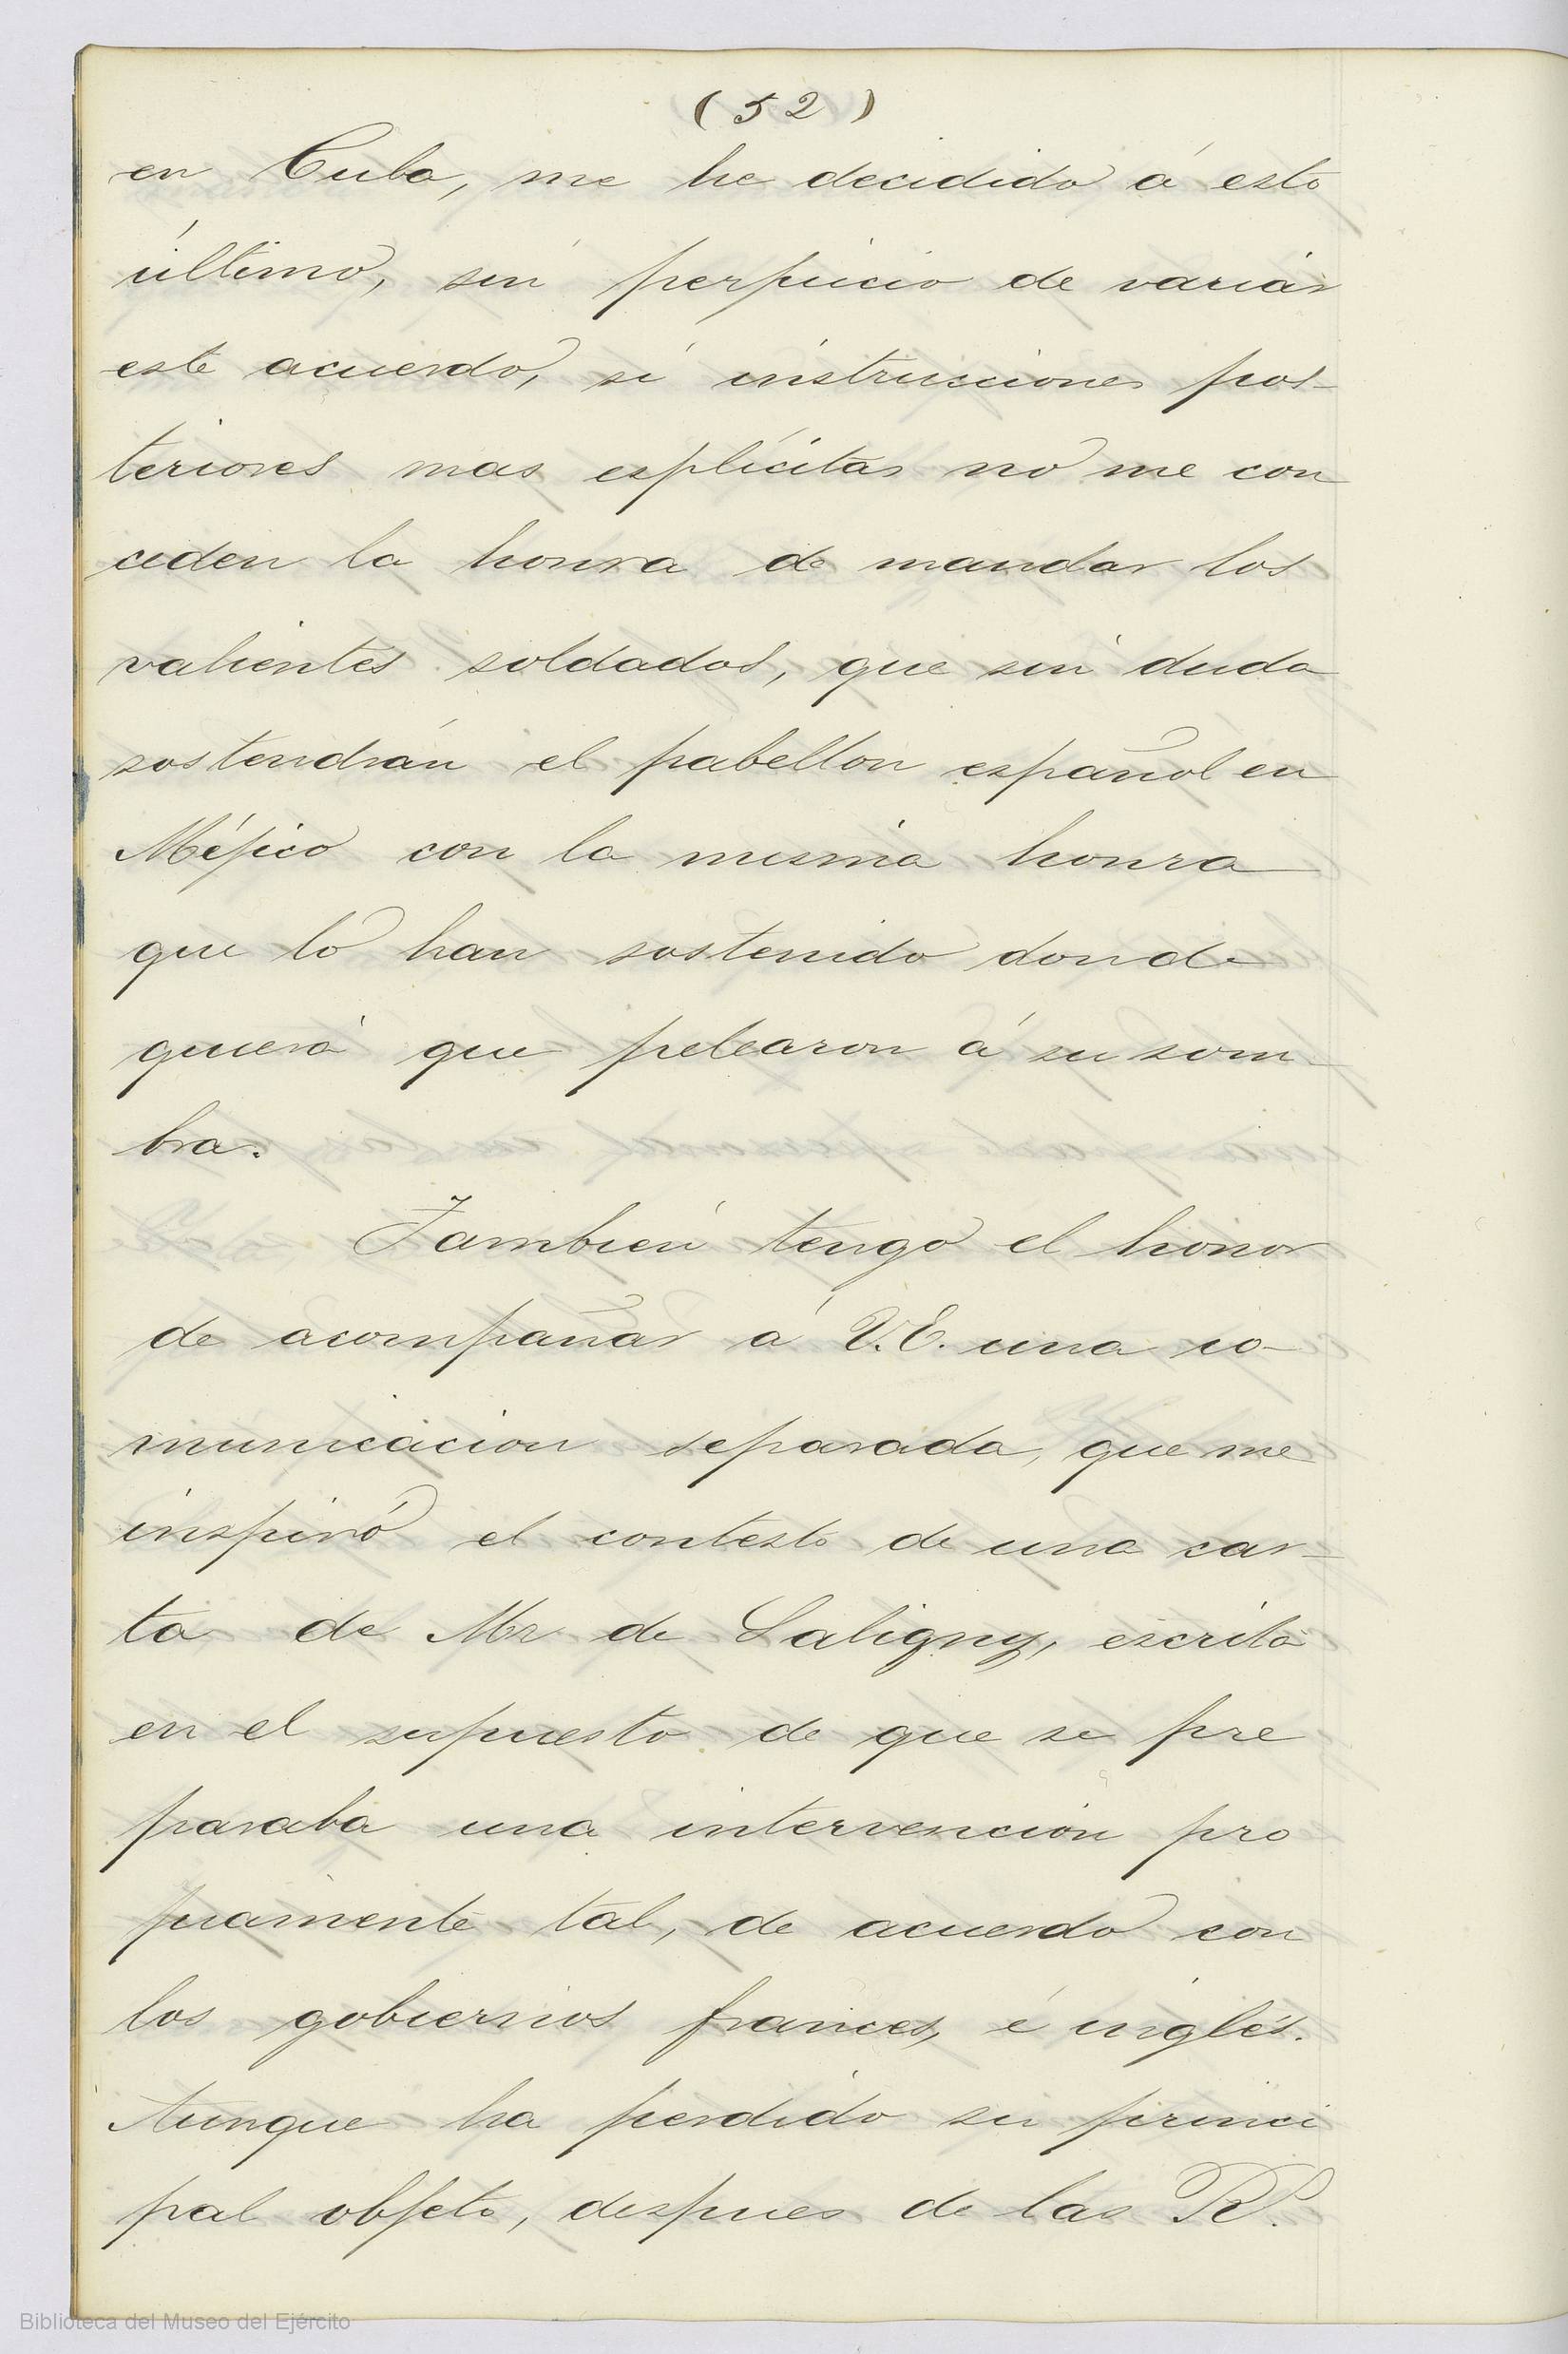 (52)
en Cuba, me he decidido á esto
último, sin perjuicio de variar
este acuerdo, si instrucciones pos-
teriores mas esplícitas no me con
ceden la honra de mandar los
valientes soldados, que sin duda
sostendrán el pabellon español en
Méjico con la misma honra
que lo han sostenido donde
quiera que pelearon á su som
bra.
Tambien tengo el honor
de acompañar á V.E. una co-
municacion separada, que me
inspiró el contesto de una car-
ta de Mr de Saligny, escrita
en el supuesto de que se pre
paraba una intervencion pro
piamente tal, de acuerdo con
los gobiernos frances, é inglés.
Aunque ha perdido su princi
pal objeto, despues de las R.
Biblioteca del Museo del Ejército